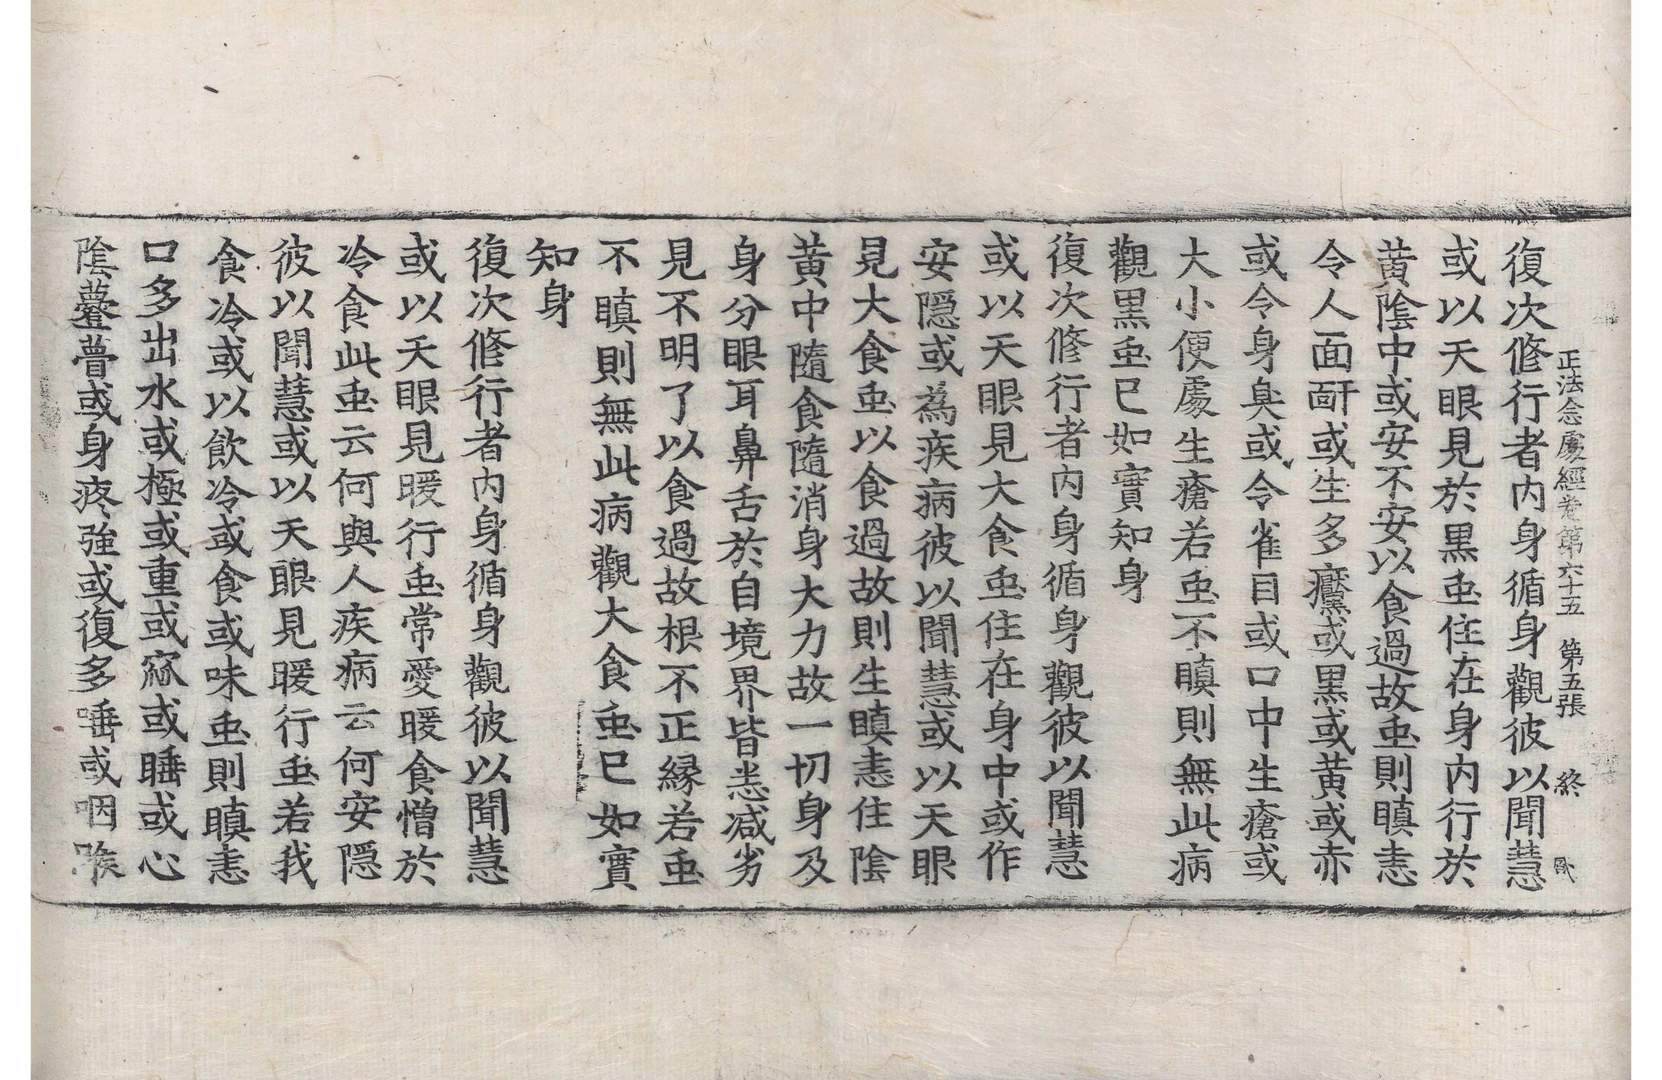 正法念處經卷第六十五　第五張　終
復次修行者内身循身觀彼以聞慧
或以天眼見於黑䖝住在身内行於
黃陰中或安不安以食過故䖝則瞋恚
令人面皯或生多黶或黑或黃或赤
或令身臭或令雀目或口中生瘡或
大小便處生瘡若䖝不瞋則無此病
觀黑䖝已如實知身
復次修行者内身循身觀彼以聞慧
或以天眼見大食䖝住在身中或作
安隱或為疾病彼以聞慧或以天眼
見大食䖝以食過故則生瞋恚住陰
黃中隨食隨消身大力故一切身及
身分眼耳鼻舌於自境界皆恙減劣
見不明了以食過故根不正緣若䖝
不瞋則無此病觀大食䖝已如實
知身
復次修行者内身循身觀彼以聞慧
或以天眼見暖行䖝常愛暖食憎於
冷食此䖝云何與人疾病云何安隱
彼以聞慧或以天眼見暖行䖝若我
食冷或以飲冷或食或味䖝則瞋恚
口多出水或極或重或寐或睡或心
陰薹瞢或身疼強或復多唾或咽喉